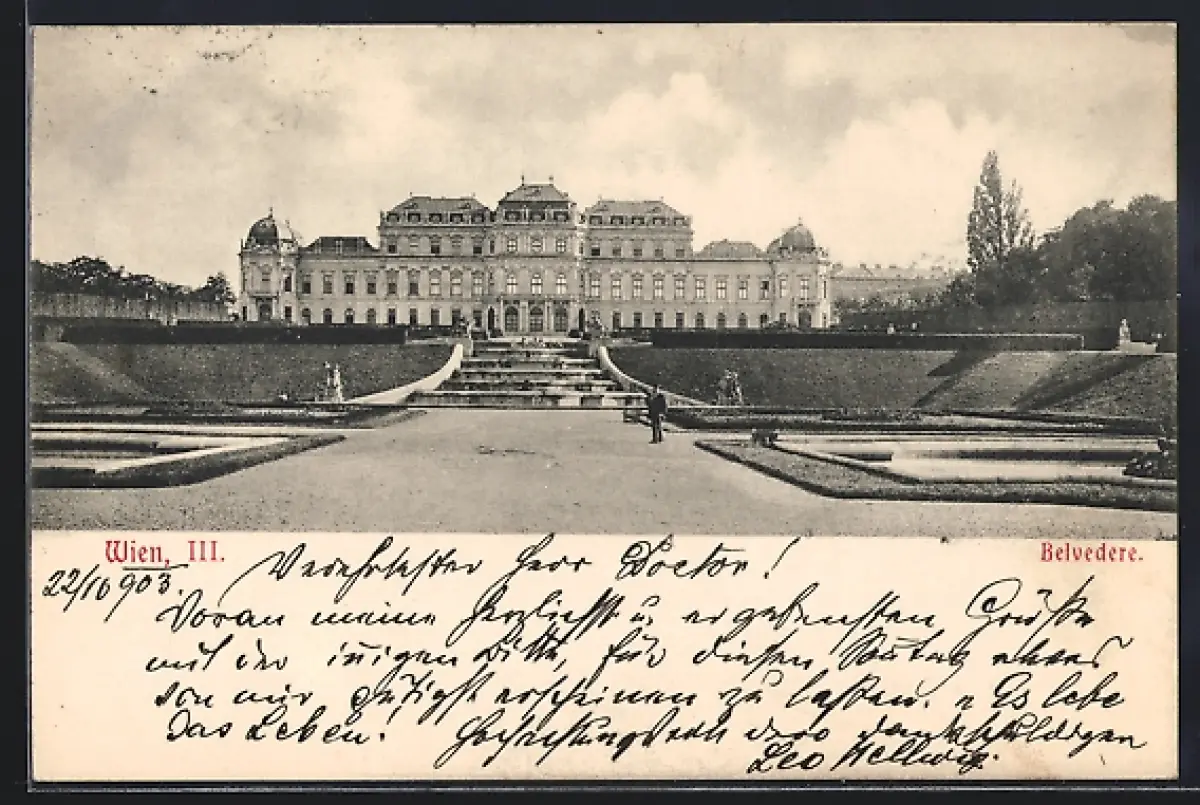 Wien, III.
Belvedere.
22/10 903.
Verehrtester Herr Doctor!
Voran meine herzlichsten u. ergebensten Grüße
mit der innigen Bitte, für diesen Sonntag etwas
von mir gütigst erscheinen zu lassen. "Es lebe
das Leben." Hochachtungsvoll Ihr dankschuldigen
Leo Hellwig.